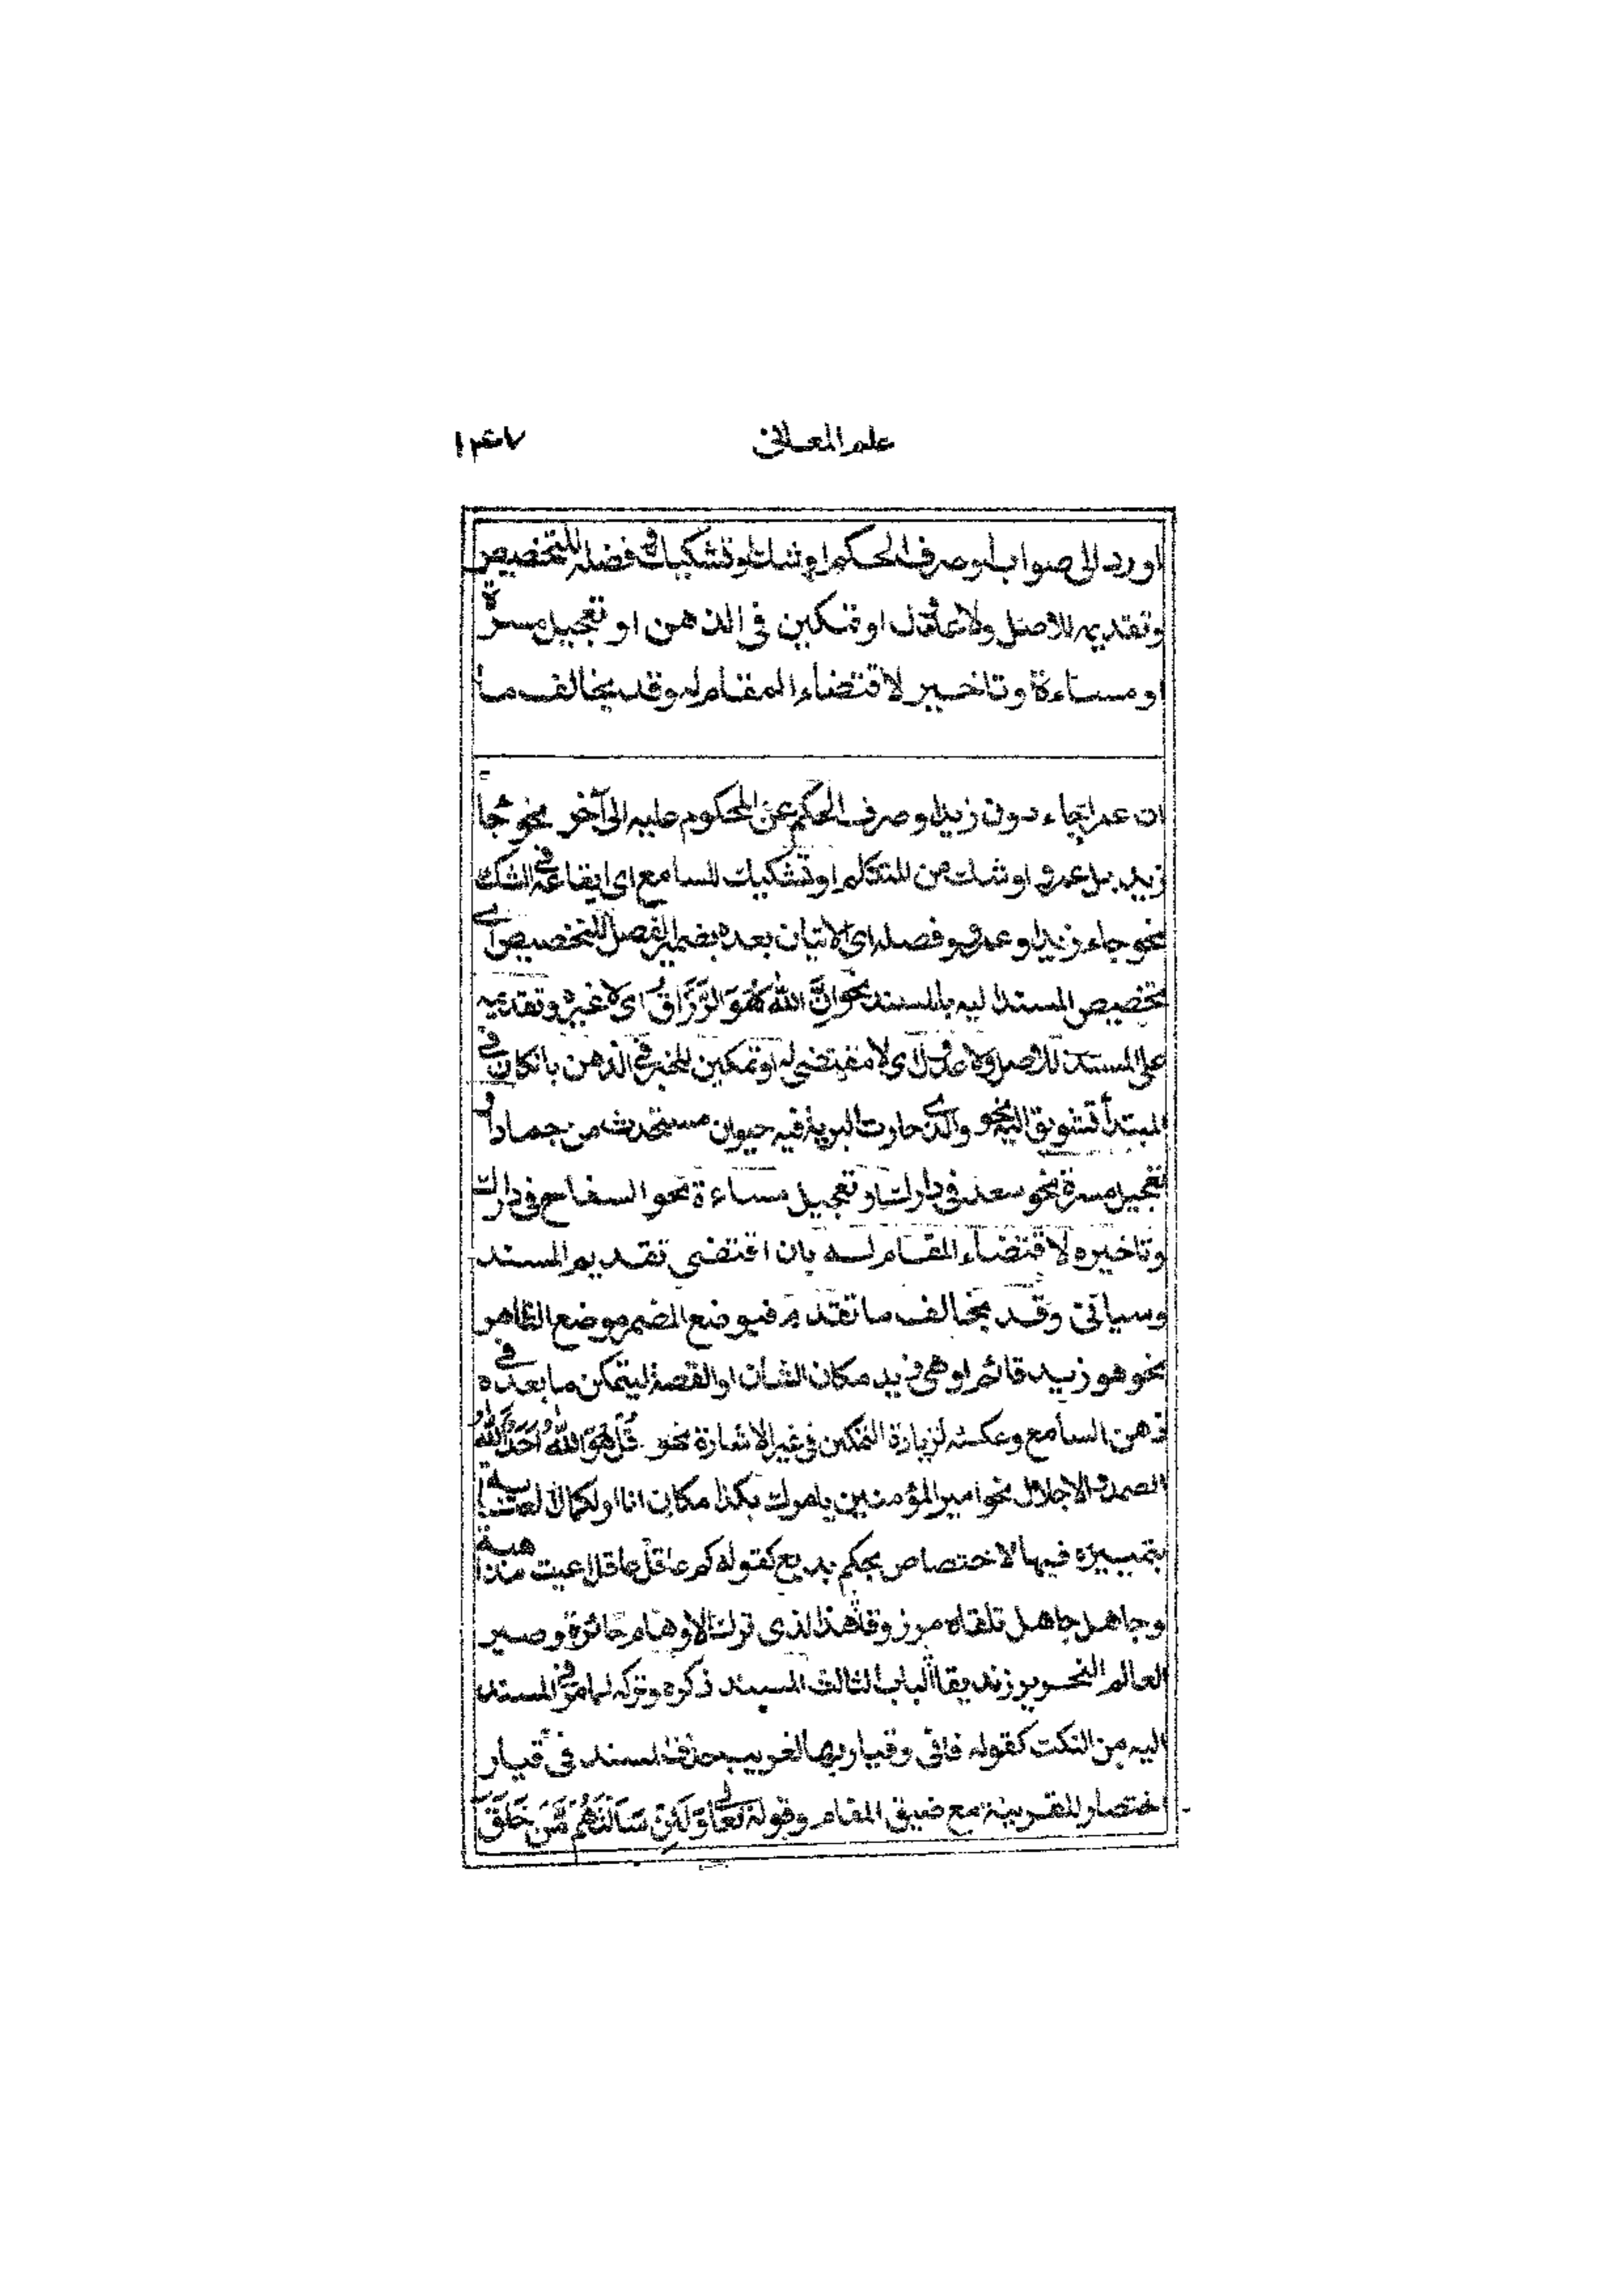 علم المعانى
۱۴۷
او رد الى صواب او صرف الحكم او شك او تشكيك و فصله للتخصيص
وتقديمه للاصل ولا عادل او تمكين فى الذهن او تعجيل مسرة
او مساءة وتاخير لاقتضاء المقام له وقد يخالف ما
ان عمرا جاء دون زيد او صرف الحكم عن المحكوم عليه الى آخر نحو جا
زيد بل عمرو او شك من المتكلم او تشكيك للسامع اى ايقاعه فى الشك
نحو جاء زيد او عمرو و فصله اى الاتيان بعده بضمير الفصل للتخصيص اى
تخصيص المسند اليه بالمسند نحو اِنَّ اللهَ هُوَ الرَّزَّاقُ اى لا غيره وتقديمه
على المسند للاصل ولا عادل اى لا مقتضى له او تمكين للخبر فى الذهن بان كان فى
المبتدأ تشويق اليه نحو والذى حارت البرية فيه حيوان مستحدث من جماد او
تعجيل مسرة نحو سعد فى دارك او تعجيل مساءة نحو السفاح فى دارك
وتاخيره لاقتضاء المقام له بان اقتضى تقديم المسند
وسياتى وقد يخالف ما تقدم فيوضع المضمر موضع الظاهر
نحو هو زيد قائم او هى زيد مكان الشأن او القصة ليتمكن ما بعده فى
ذهن السامع وعكسه لزيادة التمكين فى غير الاشارة نحو قُلْ هُوَ اللهُ اَحَدٌ اَللهُ
الصمد والاجلال نحو امير المؤمنين يامرك بكذا مكان انا او لكمال العناية
بتمييزه فيها لاختصاص بحكم بديع كقوله كم عاقل عاقل اعيت مذاهبه
وجاهل جاهل تلقاه مرزوقا هذا الذى ترك الاوهام حائرة وصير
العالم النحرير زنديقا الباب الثالث المسند ذكره وتركه لما مر فى المسند
اليه من النكت كقوله فانى وقيار بها لغريب حذف المسند فى قيار
اختصار للقرينة مع ضيق المقام وقوله تعالى وَلَئِنْ سَاَلْتَهُمْ مَّنْ خَلَقَ